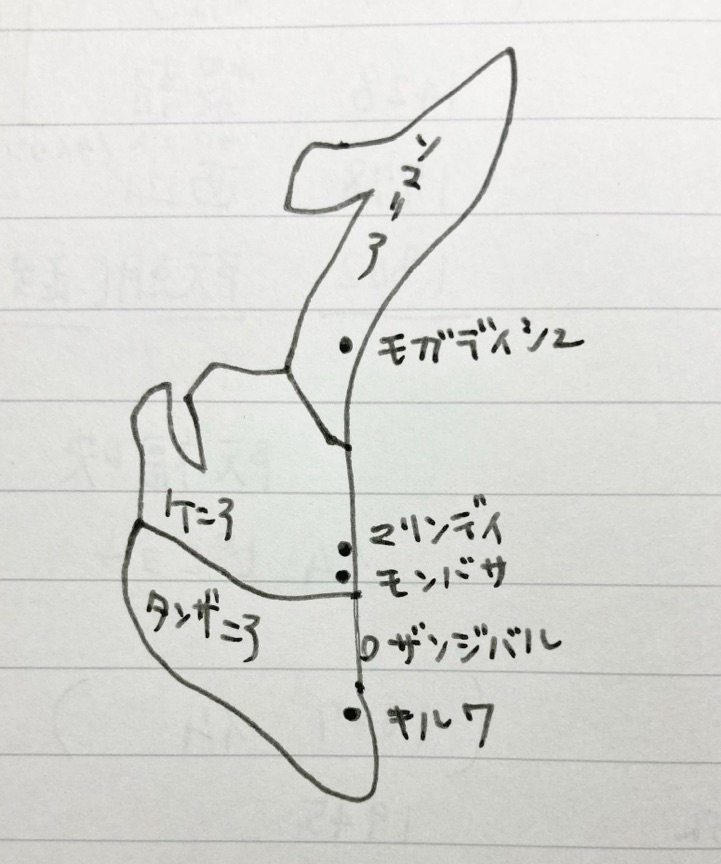 ソマリア
モガディシュ
ケニア
マリンディ
モンバサ
タンザニア
ザンジバル
キルワ